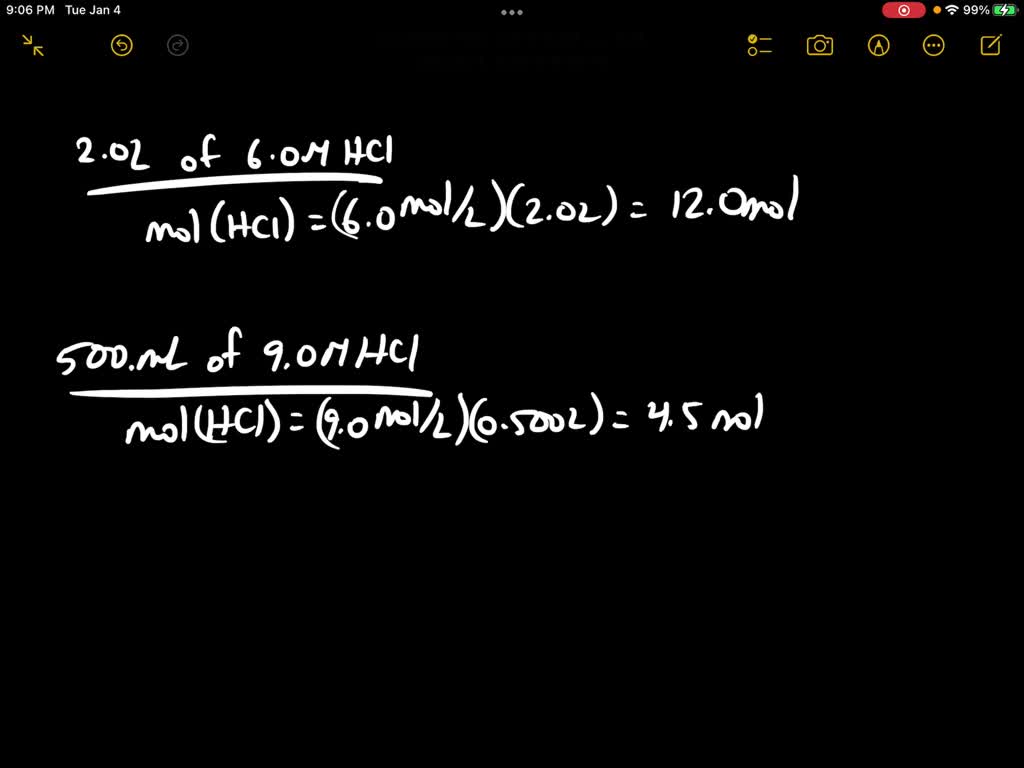 9:06 PM Tue Jan 4
99%
2.0L of 6.0M HCl
mol(HCl) = (6.0 mol/L)(2.0L) = 12.0mol
500.mL of 9.0M HCl
mol(HCl) = (9.0 mol/L)(0.500L) = 4.5 mol